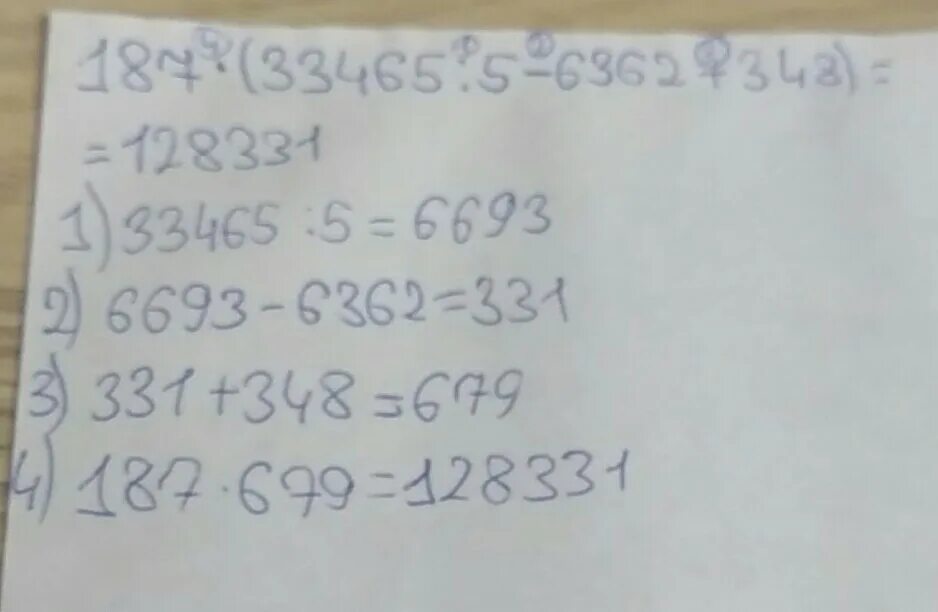 187 · (33465 : 5 - 6362 + 348) =
= 128331
1) 33465 : 5 = 6693
2) 6693 - 6362 = 331
3) 331 + 348 = 679
4) 187 · 679 = 128331